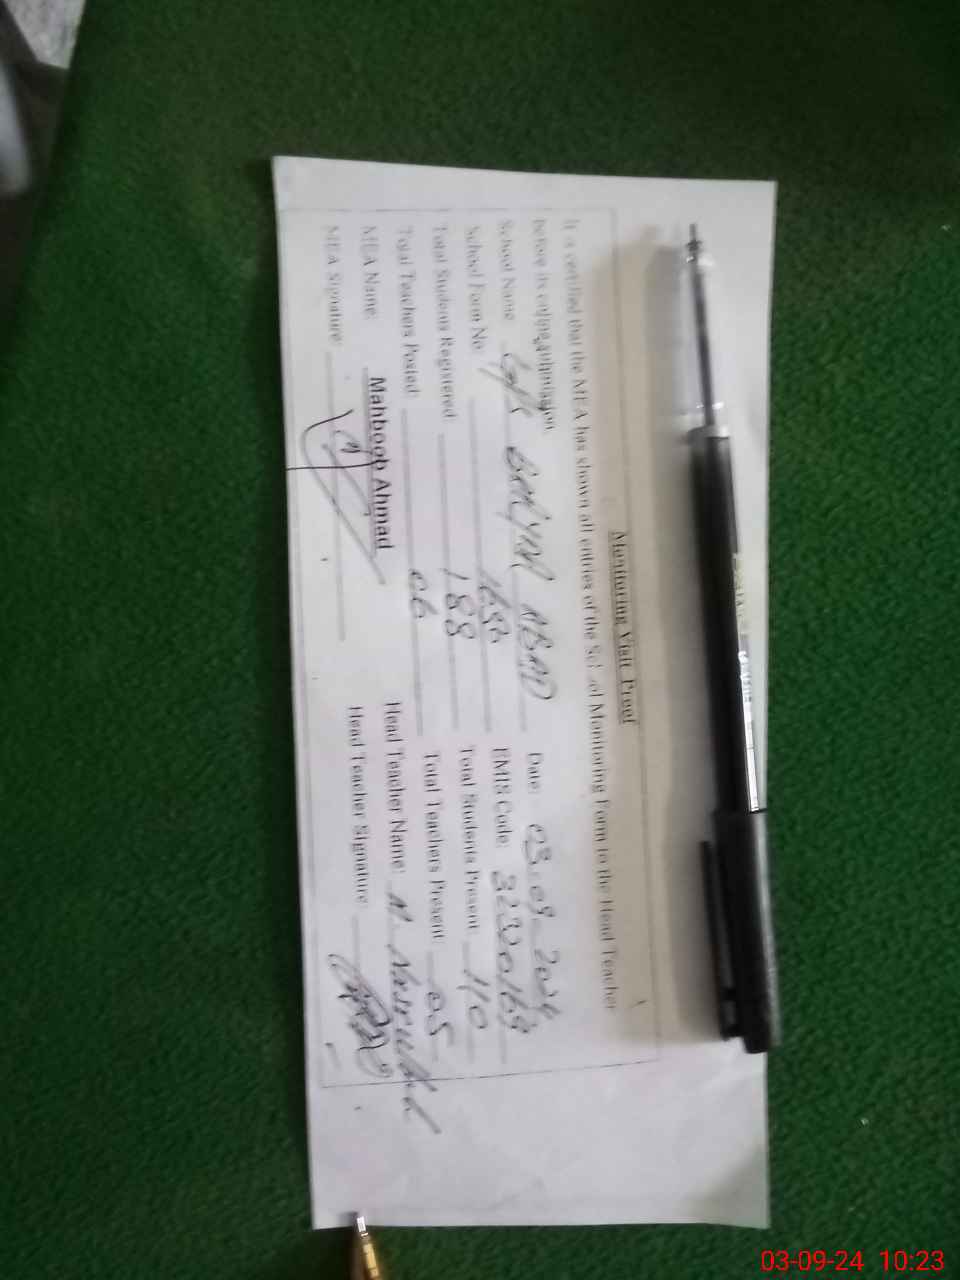 Monitoring Visit Proof
It is certified that the MEA has shown all entries of the School Monitoring Form to the Head Teacher
before its online submission.
School Name ABAD Date: 03-09-2024
School Form No. EMIS Code:
Total Students Registered: 188 Total Students Present 110
Total Teachers Posted: 06 Total Teachers Present: 05
MEA Name: Mahboob Ahmad Head Teacher Name: M.
MEA Signature: Head Teacher Signature
03-09-24 10:23